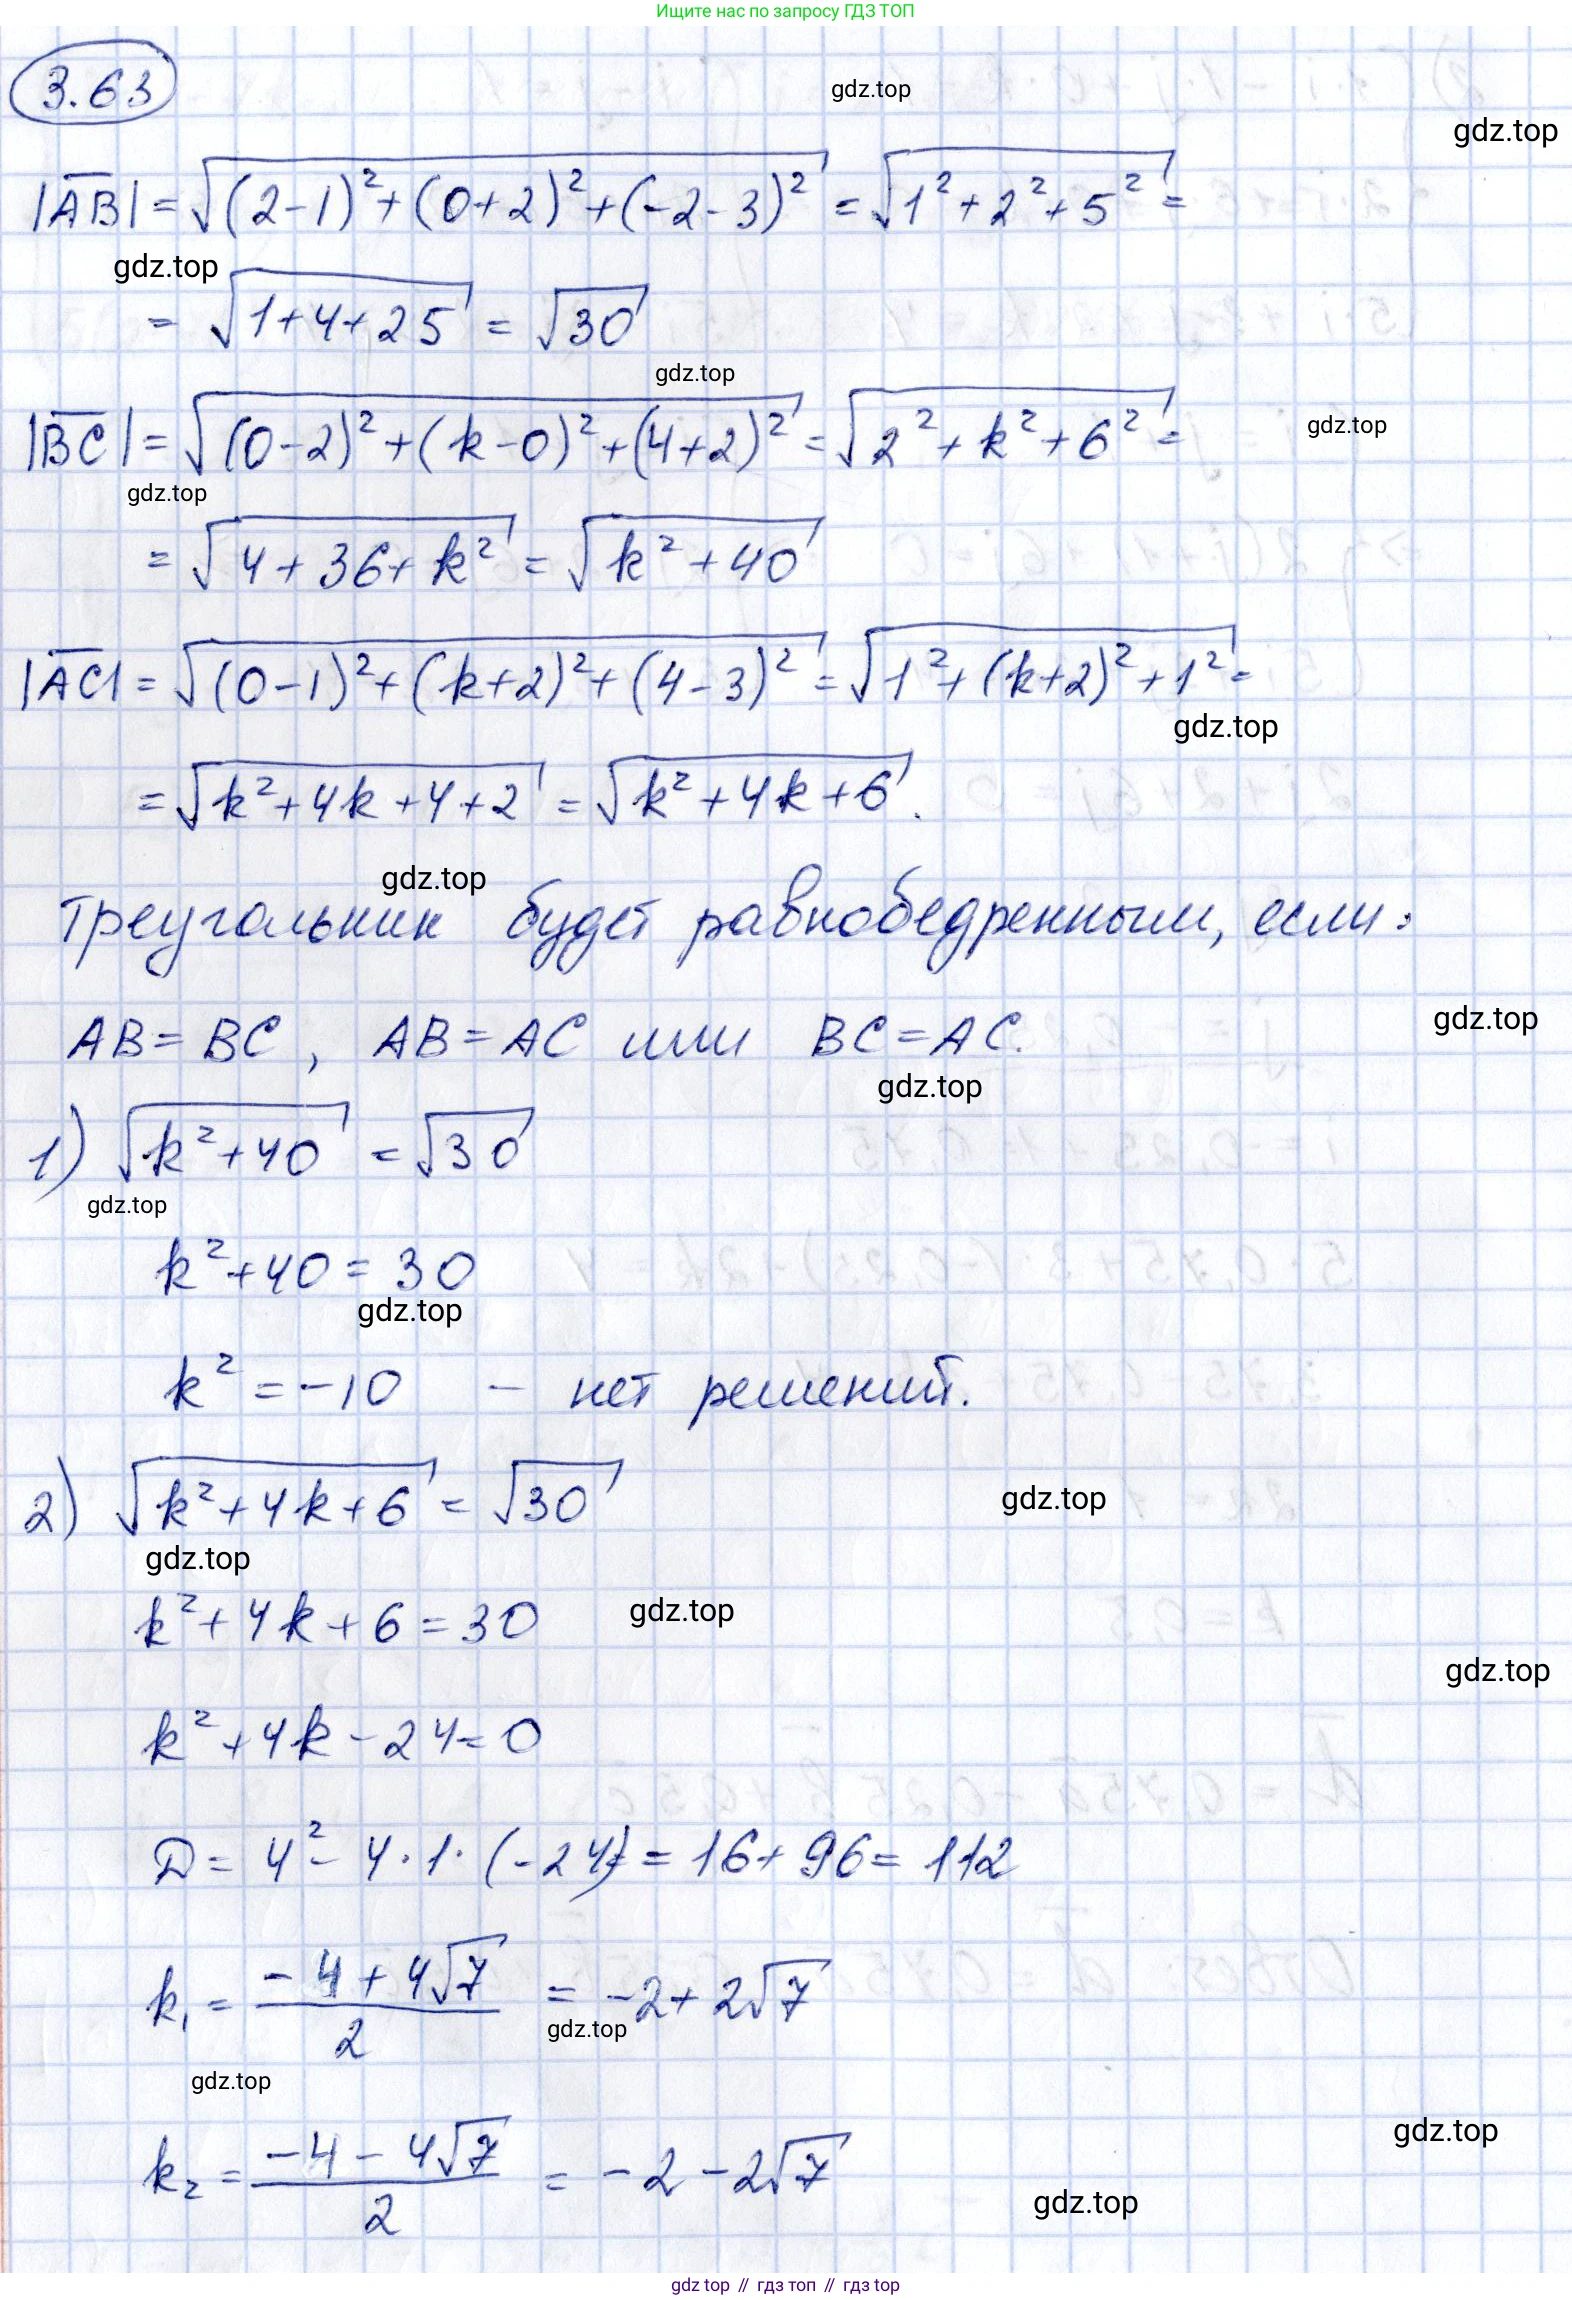 Ищите нас по запросу ГДЗ ТОП
3.63
gdz.top
gdz.top
|AB| = √((2-1)²+(0+2)²+(-2-3)²) = √(1²+2²+5²) =
gdz.top
= √(1+4+25) = √30
gdz.top
|BC| = √((0-2)²+(k-0)²+(4+2)²) = √(2²+k²+6²) =
gdz.top
gdz.top
= √(4+36+k²) = √(k²+40)
|AC| = √((0-1)²+(k+2)²+(4-3)²) = √(1²+(k+2)²+1²) =
gdz.top
= √(k²+4k+4+2) = √(k²+4k+6).
gdz.top
Треугольник будет равнобедренным, если:
AB = BC, AB = AC или BC = AC.
gdz.top
gdz.top
1) √(k²+40) = √30
gdz.top
k²+40 = 30
gdz.top
k² = -10 - нет решений.
2) √(k²+4k+6) = √30
gdz.top
gdz.top
k²+4k+6 = 30
gdz.top
gdz.top
k²+4k-24=0
D = 4²-4·1·(-24) = 16+96 = 112
k₁ = (-4+4√7)/2 = -2+2√7
gdz.top
gdz.top
k₂ = (-4-4√7)/2 = -2-2√7
gdz.top
gdz.top
gdz top // гдз топ // гдз top